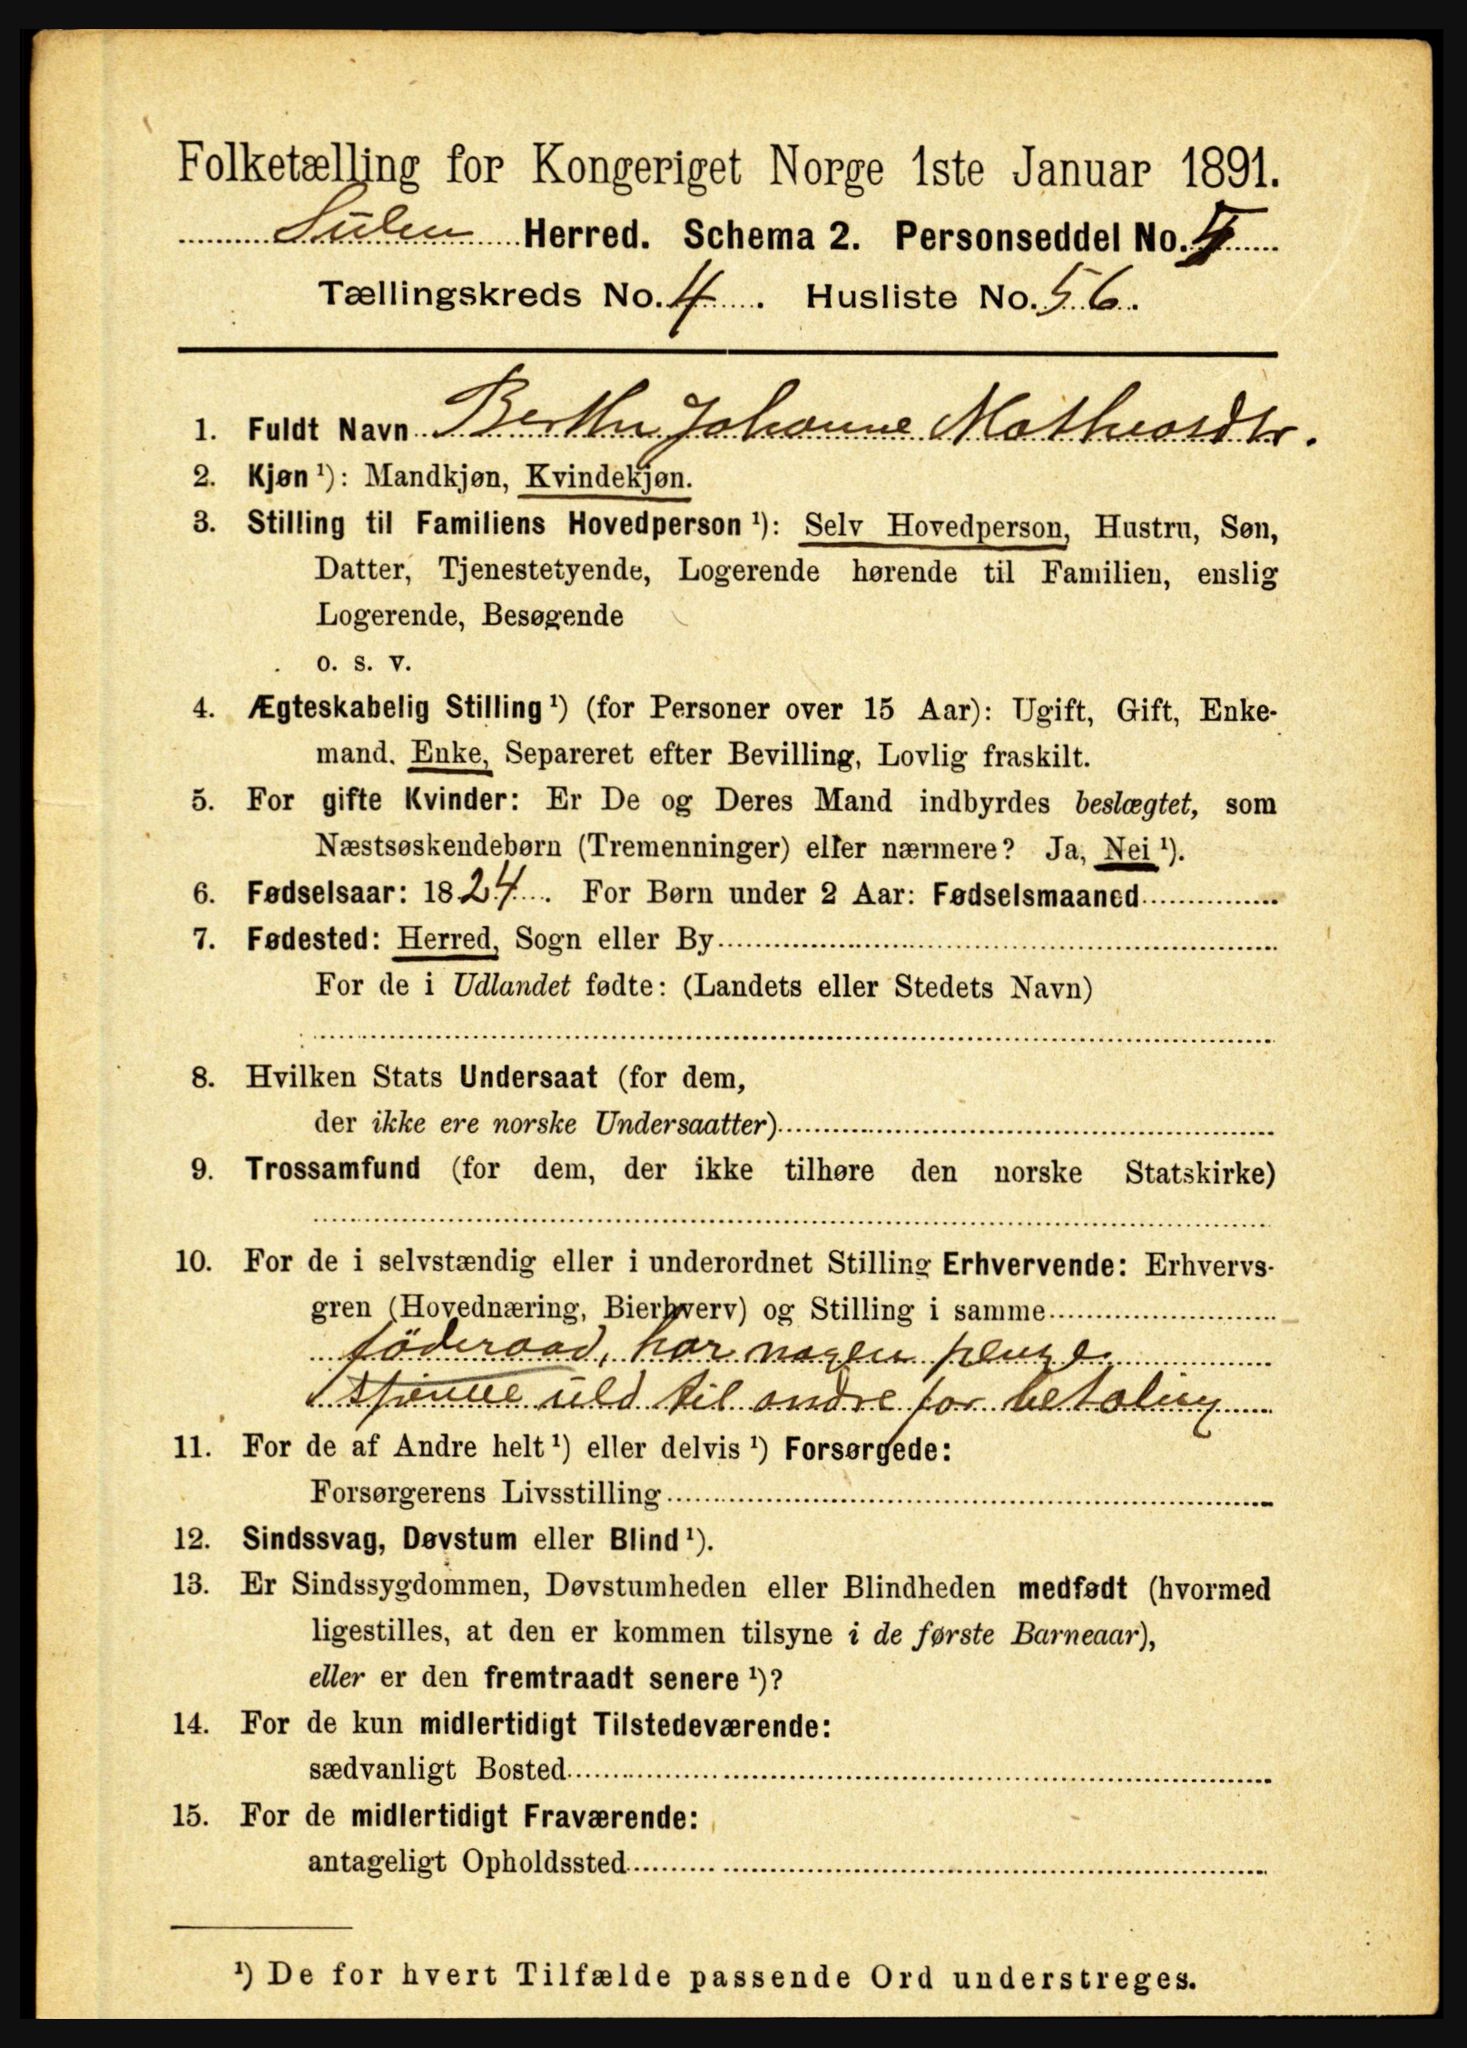 Folketælling for Kongeriget Norge 1ste Januar 1891.
Sulen Herred. Schema 2. Personseddel No.
Tællingskreds No. 4. Husliste No. 56.
1. Fuldt Navn Berthe Johanne Matheasdtr.
2. Kjøn ¹): Mandkjøn, Kvindekjøn.
3. Stilling til Familiens Hovedperson ¹): Selv Hovedperson, Hustru, Søn,
Datter, Tjenestetyende, Logerende hørende til Familien, enslig
Logerende, Besøgende
o. s. v.
4. Ægteskabelig Stilling ¹) (for Personer over 15 Aar): Ugift, Gift, Enke-
mand, Enke, Separeret efter Bevilling, Lovlig fraskilt.
5. For gifte Kvinder: Er De og Deres Mand indbyrdes beslægtet, som
Næstsøskendebørn (Tremenninger) eller nærmere? Ja, Nei ¹).
6. Fødselsaar: 1824. For Børn under 2 Aar: Fødselsmaaned
7. Fødested: Herred, Sogn eller By
For de i Udlandet fødte: (Landets eller Stedets Navn)
8. Hvilken Stats Undersaat (for dem,
der ikke ere norske Undersaatter)
9. Trossamfund (for dem, der ikke tilhøre den norske Statskirke)
10. For de i selvstændig eller i underordnet Stilling Erhvervende: Erhvervs-
gren (Hovednæring, Bierhverv) og Stilling i samme
föderaad, har nogen penge
spinne uld til andre for betaling
11. For de af Andre helt ¹) eller delvis ¹) Forsørgede:
Forsørgerens Livsstilling
12. Sindssvag, Døvstum eller Blind ¹).
13. Er Sindssygdommen, Døvstumheden eller Blindheden medfødt (hvormed
ligestilles, at den er kommen tilsyne i de første Barneaar),
eller er den fremtraadt senere ¹)?
14. For de kun midlertidigt Tilstedeværende:
sædvanligt Bosted
15. For de midlertidigt Fraværende:
antageligt Opholdssted
¹) De for hvert Tilfælde passende Ord understreges.